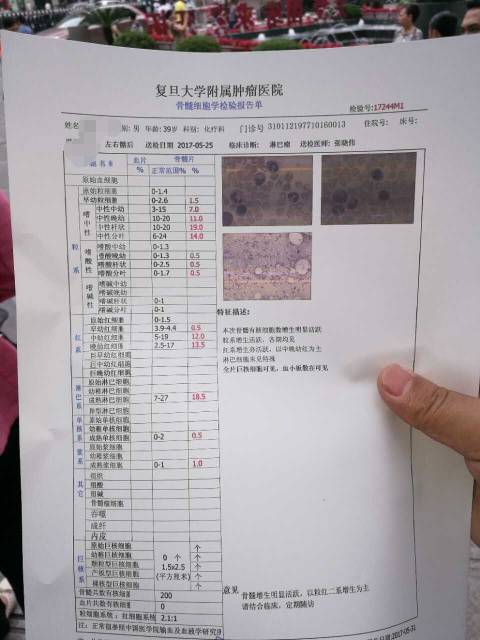 复旦大学附属肿瘤医院
骨髓细胞学检验报告单
检验号:17244M1
姓名 别: 男 年龄: 39岁 科别: 化疗科 门诊号 310112197710160013 住院号: 床号:
左右髂后 送检日期 2017-05-25 临床诊断: 淋巴瘤 送检医师: 张晓伟
血片 骨髓片
% 正常范围% %
原始血细胞
原始粒细胞 0-1.4
早幼粒细胞 0-2.6 1.5
粒系
嗜中性
中性中幼 3-15 7.0
中性晚幼 10-20 11.0
中性杆状 10-20 19.0
中性分叶 6-24 14.0
嗜酸性
嗜酸中幼 0-1.3
嗜酸晚幼 0-1.3 0.5
嗜酸杆状 0-2.5 0.5
嗜酸分叶 0-1.7 0.5
嗜碱性
嗜碱中幼
嗜碱晚幼
嗜碱杆状 0-1
嗜碱分叶 0-1
红系
原始红细胞 0-1.5
早幼红细胞 3.9-4.4 0.5
中幼红细胞 5-19 12.0
晚幼红细胞 2.5-17 13.5
巨早幼红细胞
巨中幼红细胞
巨晚幼红细胞
淋巴系
原始淋巴细胞
幼稚淋巴细胞
成熟淋巴细胞 7-27 18.5
异型淋巴细胞
单核系
原始单核细胞
幼稚单核细胞
成熟单核细胞 0-2 0.5
浆系
原始浆细胞
幼稚浆细胞
成熟浆细胞 0-1 1.0
其它
组织
组酸
组碱
骨髓瘤细胞
吞噬
成纤
内皮
巨核系
原始巨核细胞 个
幼稚巨核细胞 0 个 个
颗粒型巨核细胞 1.5x2.5 个
产板型巨核细胞 (平方厘米) 个
裸核型巨核细胞 个
骨髓共数有核细胞 200
血片共数有核细胞 0
粒细胞系统: 红细胞系统 2.1:1
注: 正常值参照中国医学院输血及血液学研究所
特征描述:
本次骨髓有核细胞数增生明显活跃
粒系增生活跃, 各期均见
红系增生亦活跃, 以中晚幼红为主
淋巴细胞未见特殊
全片巨核细胞可见, 血小板散在可见
意见
骨髓增生明显活跃, 以粒红二系增生为主
请结合临床, 定期随访
2017-05-31